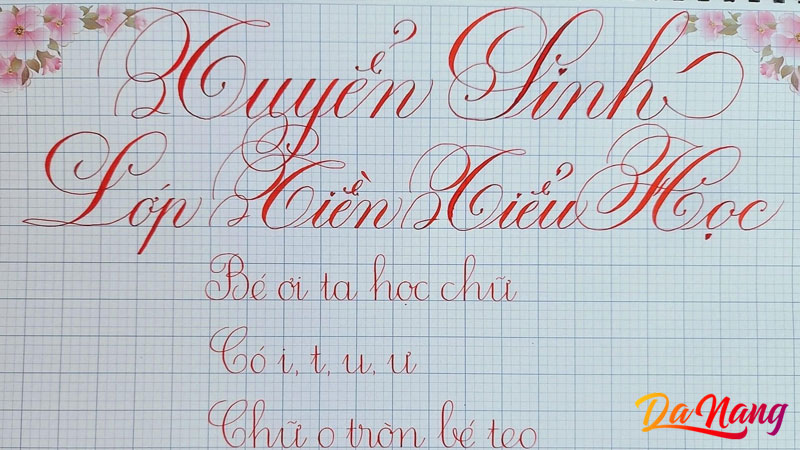 Tuyển Sinh
Lớp Tiền Tiểu Học
Bé ơi ta học chữ
Có i, t, u, ư
Chữ o tròn bé teo
DaNang